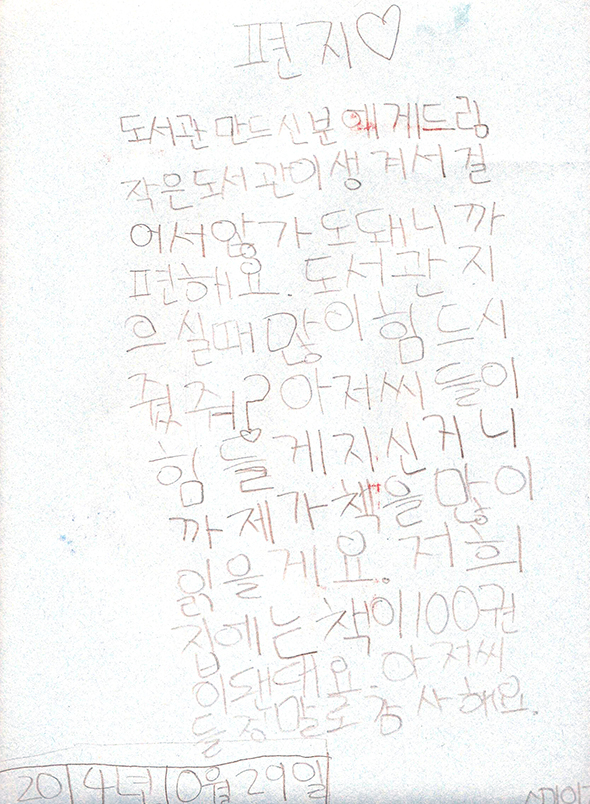 편지♡
도서관 만드신분에게드림
작은도서관이생겨서걸
어서않가도돼니까
편해요. 도서관 지
으실때많이힘드시
줪줘? 아저씨들이
힘들게지신거니
까제가책을많이
읽을게요. 저희
집에는책이100권
이댄대요. 아저씨
들정말로감사해요.
2014년10월29일